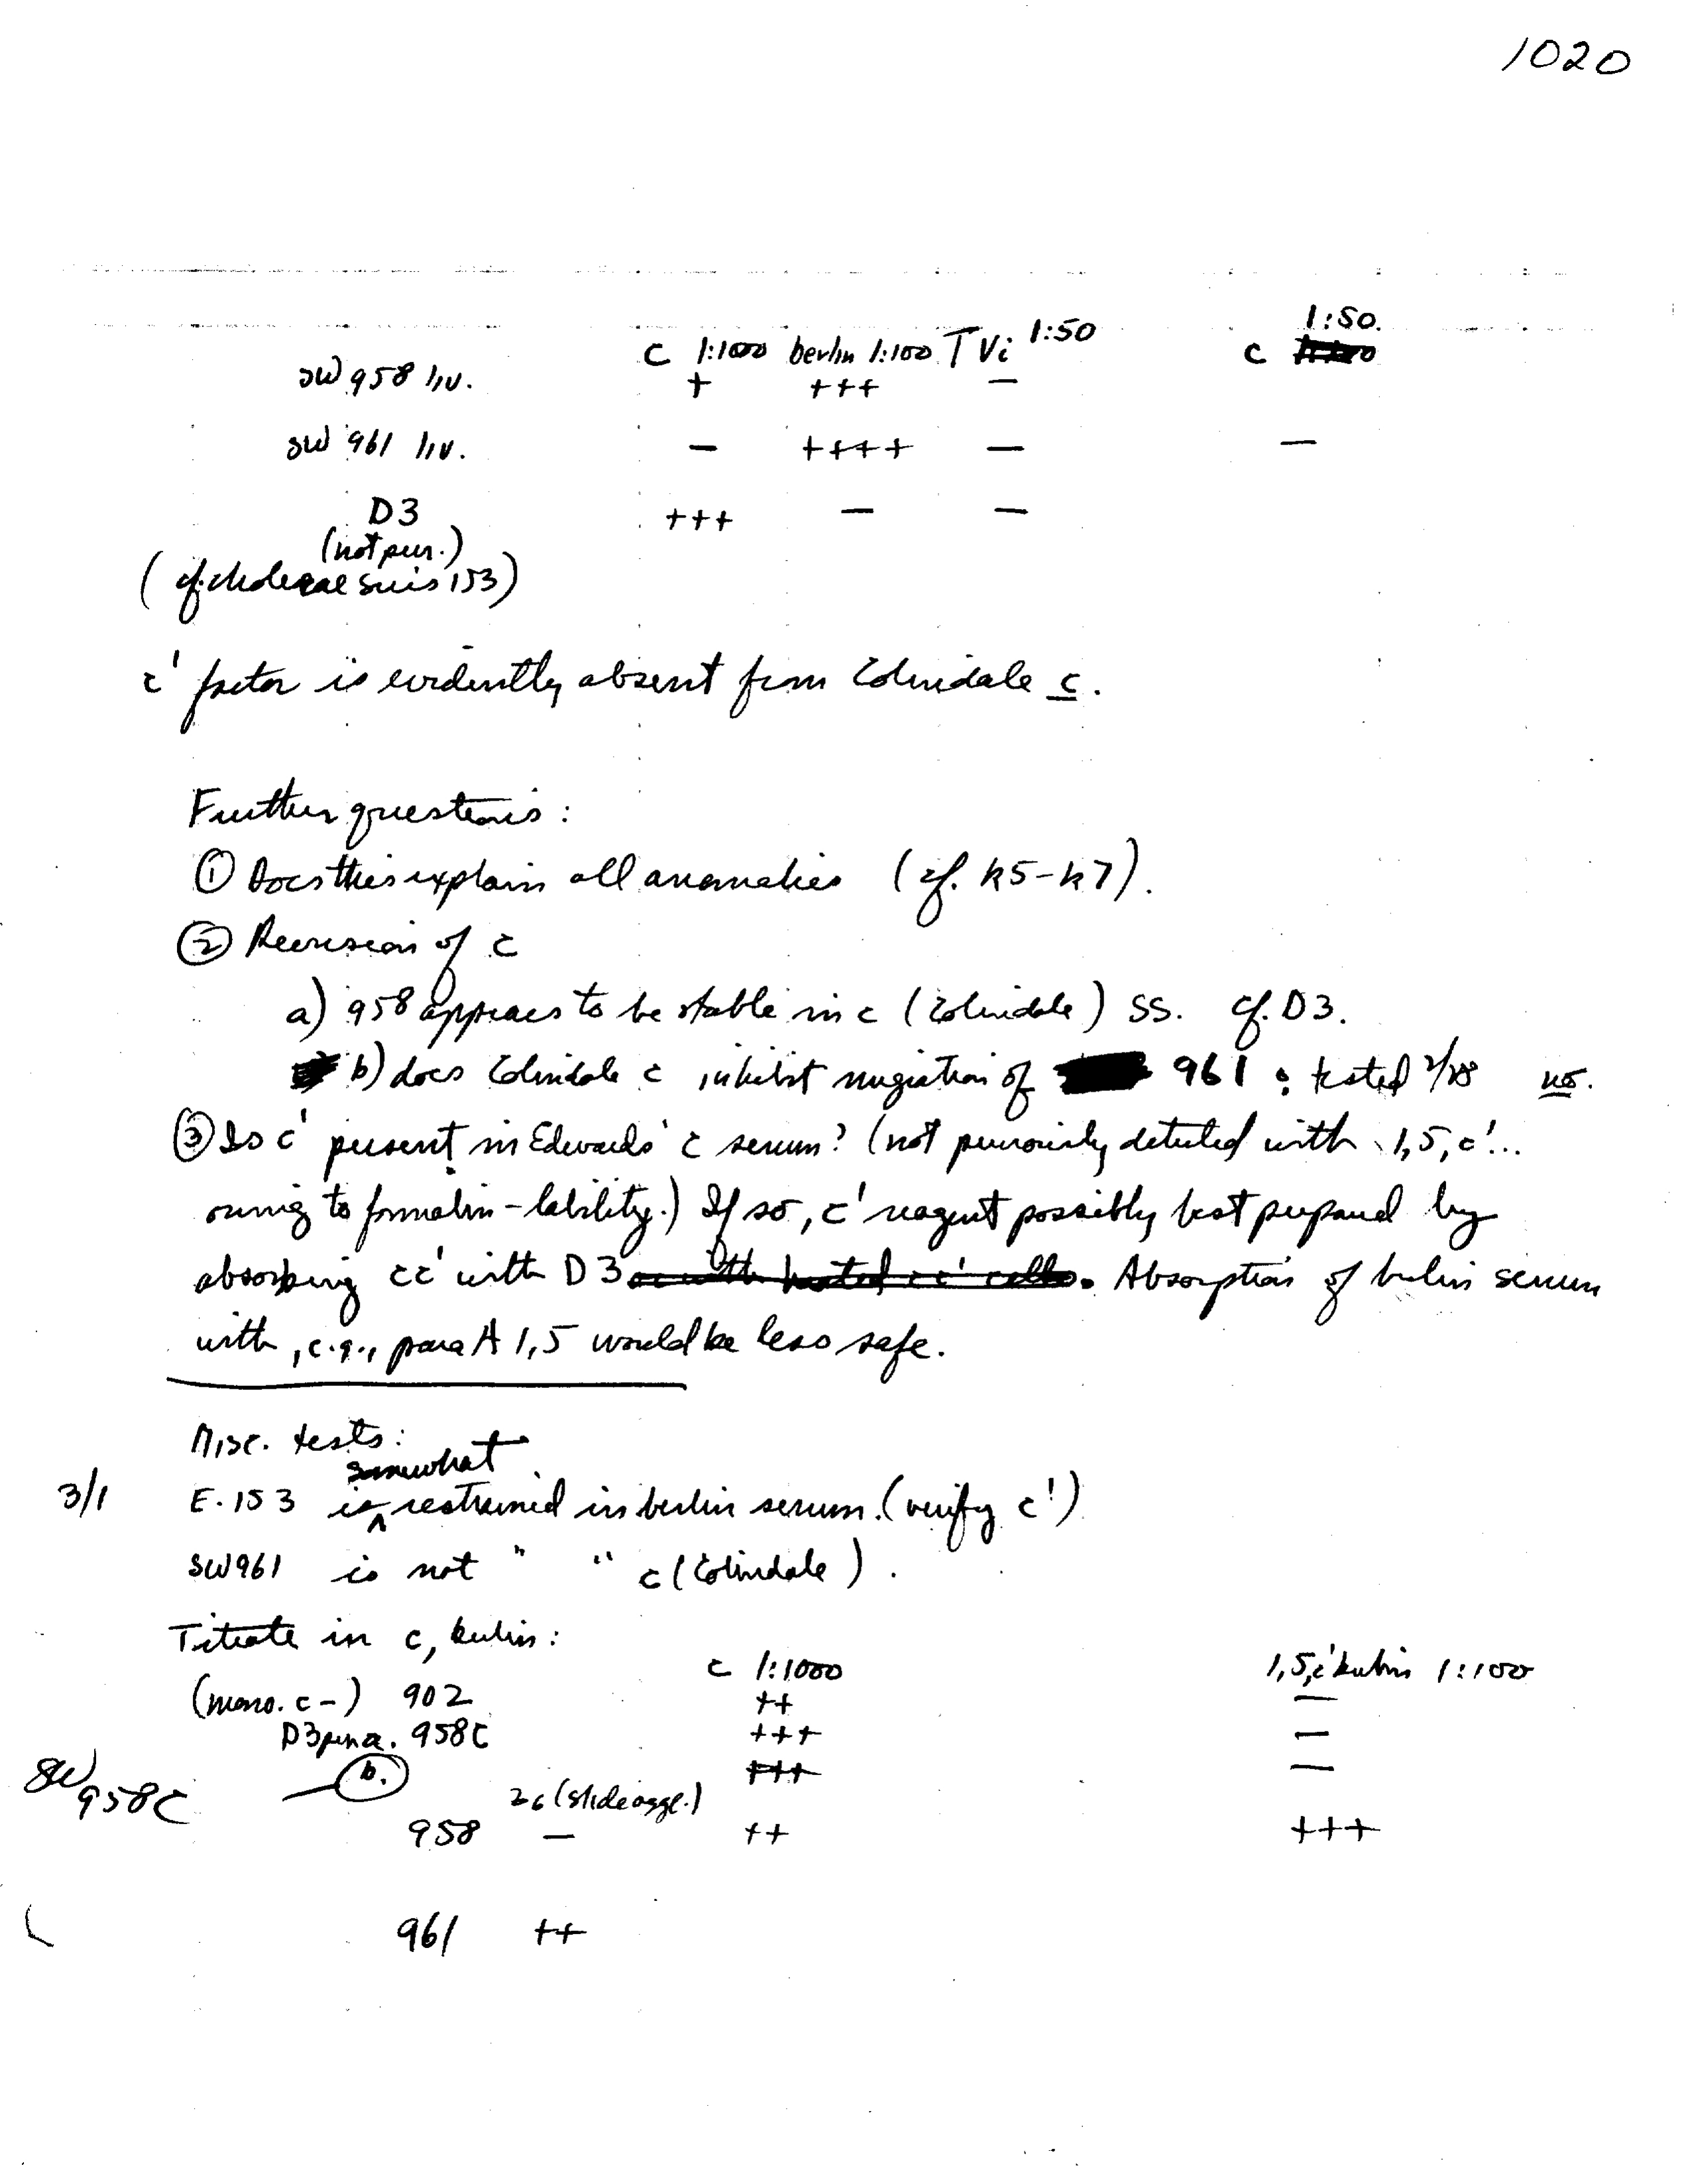 1020
1:50 1:50.
C 1:1000 berlin 1:100 T Vi c
SW 958 liv. + +++ —
SW 961 liv. — ++++ — —
D3 +++ — —
(not pur.)
(cf. cholerae suis 153)
c' factor is evidently absent from Colindale c.
Further questions:
① Does this explain all anomalies (cf. k5-k7).
② Revision of c
a) 958 appears to be stable in c (Colindale) SS. cf. D3.
b) does Colindale c inhibit migration of 961 : tested 2/28 no.
③ Is c' present in Edwards' c serum? (not previously detected with 1,5,c'...
owing to formalin-lability.) If so, c' reagent possibly best prepared by
absorbing cc' with D3 or with heated cc' cells. Absorption of berlin serum
with, e.g., para A 1,5 would be less safe.
Misc. tests:
somewhat
3/1 E. 153 is restrained in berlin serum. (verify c')
SW961 is not " " c (Colindale).
Titrate in c, berlin:
c 1:1000 1,5,c' berlin 1:100
(mono. c-) 902 ++ —
D3 958C +++ —
SW 958C b. +++ —
(slide aggl.)
958 — ++ +++
961 ++